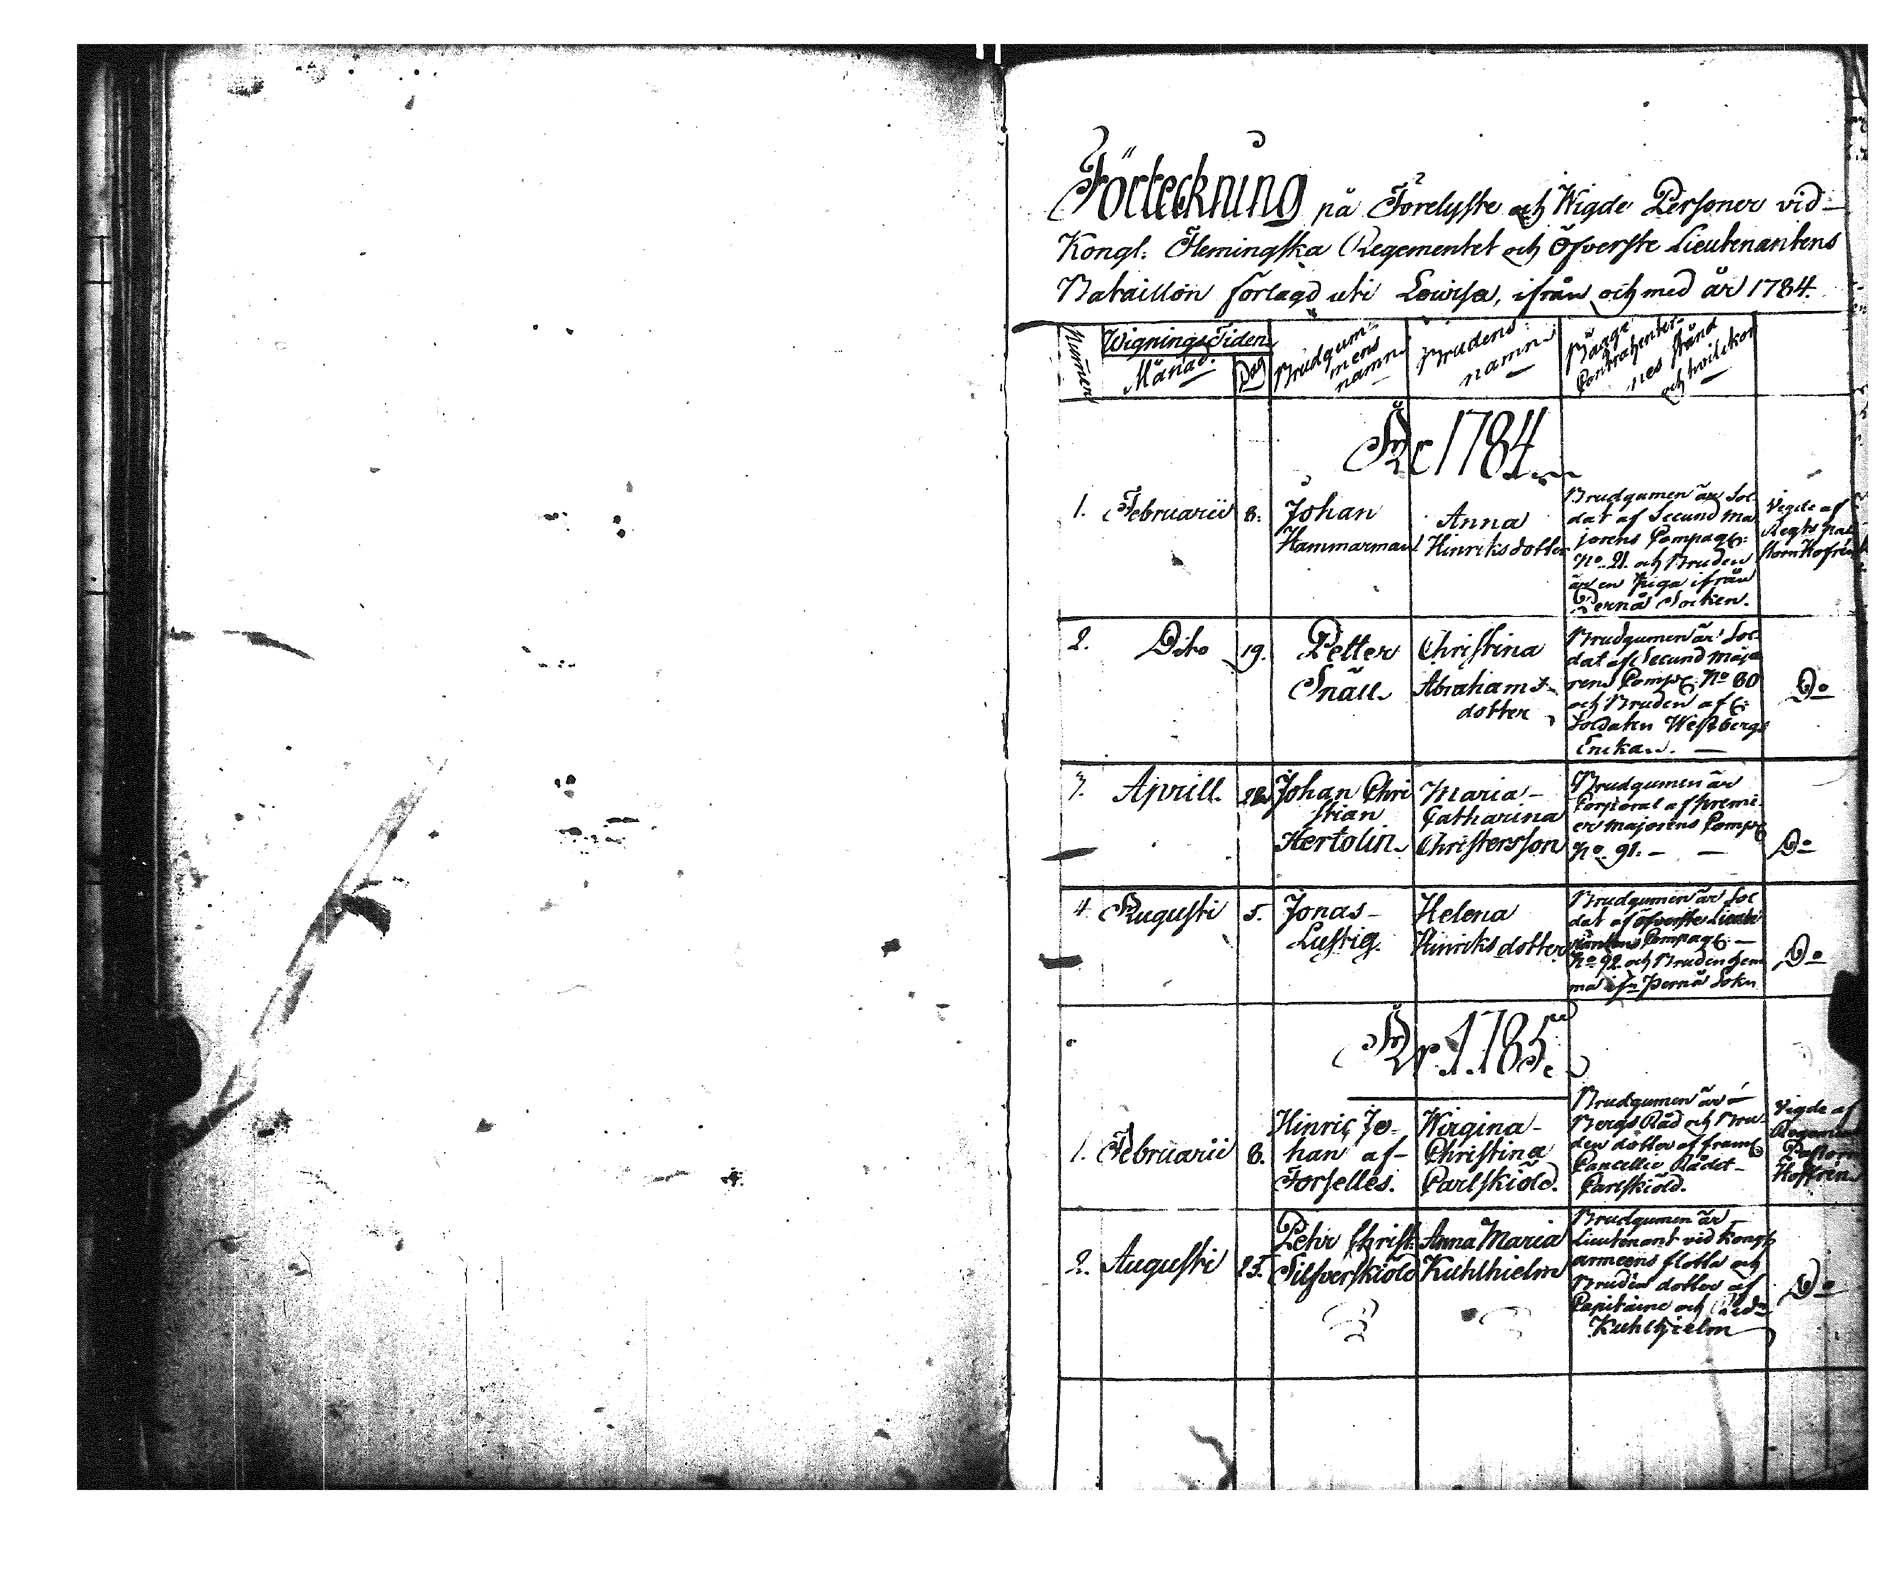 Förteckning på Förelyste och Wigde Personer vid
Kongl: Flemingska Regementet och Öfverste Lieutenantens
Bataillon förlagd uti Lovisa, ifrån och med år 1784.
Numer
Wignings Tiden
Månad.
Dag
Brudgum-
mens
namn
Brudens
namn
Bägge
Contrahenter-
nes stånd
och hvilckor
År 1784.
1. Februarii 8.
Johan
Hammarman
Anna
Hinriksdotter
Brudgumen är Sol-
dat af Secund Ma-
jorens Compag:
No. 21. och Bruden
är en Piga ifrån
Pernå Socken.
Vigde af
Regts Pa-
storn Hofrén
2. Dito 19.
Petter
Snäll
Christina
Abrahams-
dotter
Brudgumen är Sol-
dat af Secund Majo-
rens Comp: No 80
och Bruden af
Soldaten Westbergs
Enka. —
Do
3. Aprill. 28
Johan Chri
stian
Hertolin
Maria
Catharina
Christersson
Brudgumen är
Corporal af Premi-
er Majorens Comp:
No. 91. — —
Do
4. Augusti 5.
Jonas
Lustig.
Helena
Hinriksdotter
Brudgumen är Sol
dat af Öfverste Lieute
nantens Compag: —
No 92. och Bruden hem
ma ifn Pernå Sokn
Do
År 1785.
1. Februarii 8.
Hinric Jo-
han af
Forselles.
Wirgina
Christina
Carlskiöld.
Brudgumen är
Bergs Råd och Bru-
den dotter af framl:
Cancellie Rådet
Carlskiöld.
Vigde af
Regements
Pastorn
Hoffrén
2. Augusti 25.
Pehr Christ:
Silfverskiöld
Anna Maria
Kuhlhielm
Brudgumen är
Lieutenant vid Kongl
armeens flotta och
Bruden dotter af
Capitaine och Rid
Kuhlhielm
Do